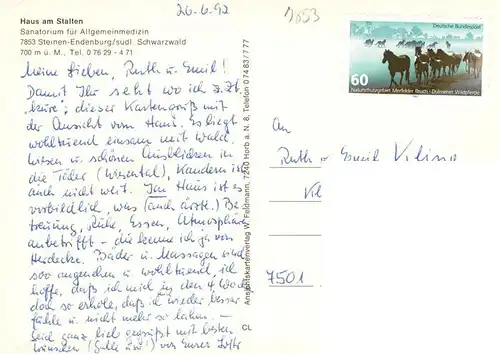 26.6.92
7853
Haus am Stalten
Sanatorium für Allgemeinmedizin
7853 Steinen-Endenburg/südl. Schwarzwald
700 m ü. M., Tel. 0 76 29 - 471
Meine Lieben, Ruth u. Emil!
Damit Ihr seht wo ich z. Zt.
kure; dieser Kartengruß mit
der Ansicht vom Haus. Es liegt
wohltuend einsam mit Wald,
Wiesen u. schönen Ausblicken in
die Täler (Wiesental), Kandern ist
auch nicht weit. Im Haus ist es
vorbildlich, was (auch ärztl.) Be-
treuung, Ruhe, Essen, Atmosphäre
anbetrifft - die kenne ich ja von
Herdecke. Bäder u. Massagen sind
soo angenehm u. wohltuend, ich
hoffe, daß ich mich in den 4 Wochen
doch so erhole, daß ich wieder besser
fühle u. nicht mehr so lahm. -
Seid ganz lieb gegrüßt mit besten
Wünschen von Eurer
Ansichtskartenverlag W. Feldmann, 7240 Horb a. N. 8, Telefon 0 74 83/7 77
CL
Deutsche Bundespost
60
Naturschutzgebiet Merfelder Bruch · Dülmener Wildpferde
An
Ruth u. Emil
7501